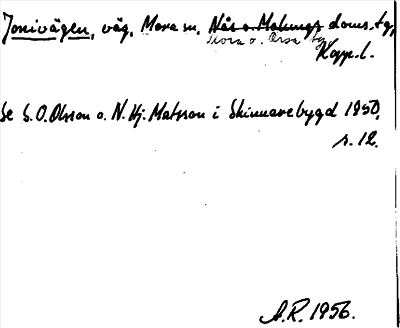 Jonivägen, väg, Mora sn, Nås o. Malungs doms. tg,
Mora o. Orsa tg
Kopp. l.
Se S. O. Olsson o. N. Hj. Matsson i Skinnarebygd 1950,
s. 12.
A.R. 1956.